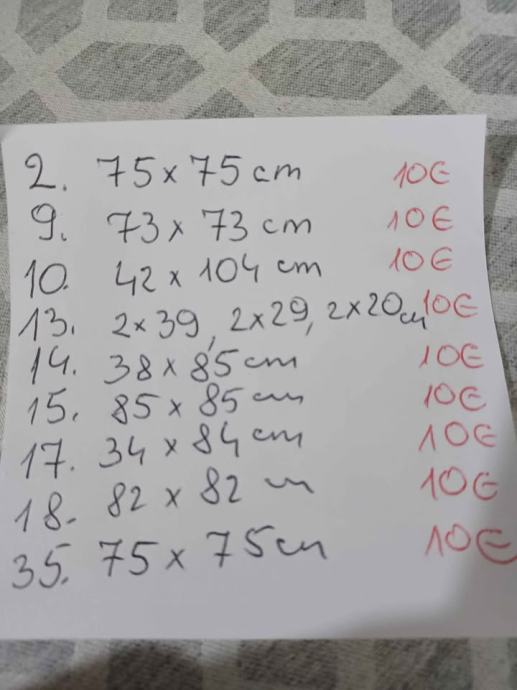 2. 75 x 75 cm 10€
9. 73 x 73 cm 10€
10. 42 x 104 cm 10€
13. 2x39, 2x29, 2x20cm 10€
14. 38 x 85cm 10€
15. 85 x 85 cm 10€
17. 34 x 84 cm 10€
18. 82 x 82 cm 10€
35. 75 x 75cm 10€